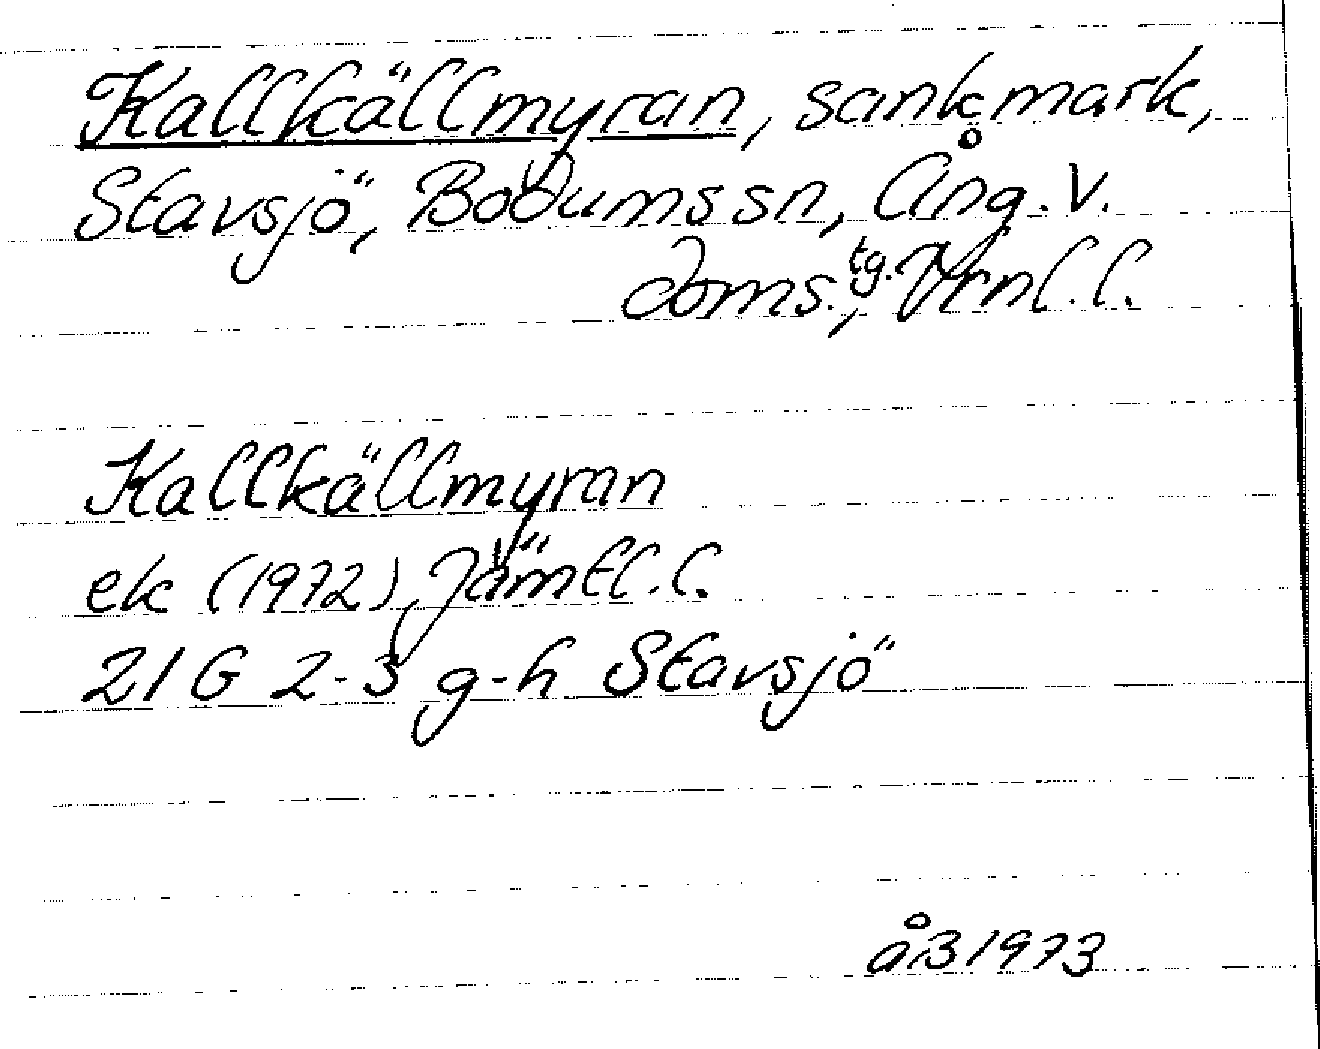 Kallkällmyran, sankmark,
Stavsjö, Bodums sn, Ång. V.
doms.tg., Vrnl.l.
Kallkällmyran
ek (1972), Jämtl.l.
21G 2-3 g-h Stavsjö
åB 1973